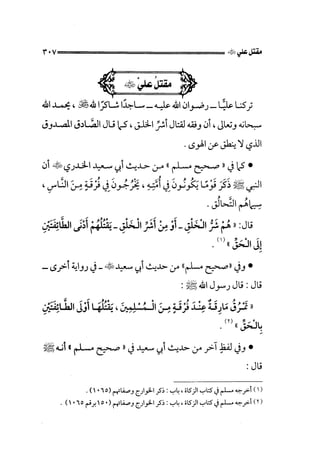 مقتل علي ﵁ ٣٠٧
مقتلُ عليٍّ ﵁
تركنا عليًّا ـ رضوان الله عليه ـ ساجدًا شاكرًا لله ﷻ ، يحمد الله
سبحانه وتعالى ، أن وفقه لقتال أشرِّ الخلق ، كما قال الصَّادق المصدوق
الذي لا ينطق عن الهوى .
• كما في « صحيح مسلم » من حديث أبي سعيد الخدري ﵁ أن
النبي ﷺ ذَكَرَ قَوْمًا يَكُونُونَ فِي أُمَّتِهِ ، يَخْرُجُونَ فِي فُرْقَةٍ مِنَ النَّاسِ ،
سِيمَاهُمُ التَّحَالُقِ .
قال : « هُمْ شَرُّ الْخَلْقِ ـ أَوْ مِنْ أَشَرِّ الْخَلْقِ ـ يَقْتُلُهُمْ أَدْنَى الطَّائِفَتَيْنِ
إِلَى الْحَقِّ » (١) .
• وفي «صحيح مسلم» من حديث أبي سعيد ﵁ ـ في رواية أخرى ـ
قال : قال رسول الله ﷺ :
« تَمْرُقُ مَارِقَةٌ عِنْدَ فُرْقَةٍ مِنَ الْمُسْلِمِينَ ، يَقْتُلُهَا أَوْلَى الطَّائِفَتَيْنِ
بِالْحَقِّ » (٢) .
• وفي لفظٍ آخر من حديث أبي سعيد في « صحيح مسلم » أنه ﷺ
قال :
(١) أخرجه مسلم في كتاب الزكاة ، باب : ذكر الخوارج وصفاتهم (١٠٦٥) .
(٢) أخرجه مسلم في كتاب الزكاة ، باب : ذكر الخوارج وصفاتهم (١٥٠ برقم ١٠٦٥) .